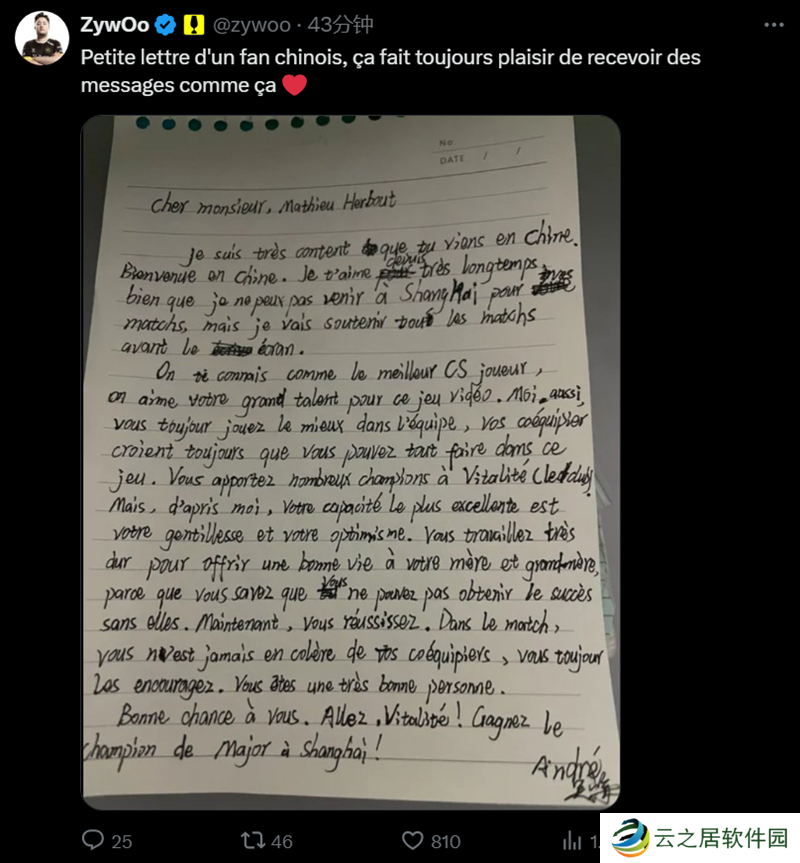 ZywOo @zywoo · 43分钟
Petite lettre d'un fan chinois, ça fait toujours plaisir de recevoir des
messages comme ça
No
DATE / /
Cher monsieur, Mathieu Herbaut
Je suis très content que tu viens en Chine.
Bienvenue en Chine. Je t'aime depuis très longtemps,
bien que je ne peux pas venir à ShangHai pour
matchs, mais je vais soutenir tous les matchs
avant le écran.
On te connais comme le meilleur CS joueur,
on aime votre grand talent pour ce jeu vidéo. Moi aussi,
vous toujour jouez le mieux dans l'équipe, vos coéquipier
croient toujours que vous pouvez tout faire dans ce
jeu. Vous apportez nombreux champions à Vitalité
Mais, d'apris moi, votre capacité le plus excellente est
votre gentillesse et votre optimisme. Vous travaillez très
dur pour offrir une bonne vie à votre mère et grand-mère,
parce que vous savez que vous ne pouvez pas obtenir le succès
sans elles. Maintenant, vous réussissez. Dans le match,
vous n'est jamais en colère de vos coéquipiers, vous toujour
les encouragez. Vous êtes une très bonne personne.
Bonne chance à vous. Allez, Vitalité! Gagnez le
champion de Major à Shanghai!
André
25 46 810
云之居软件园